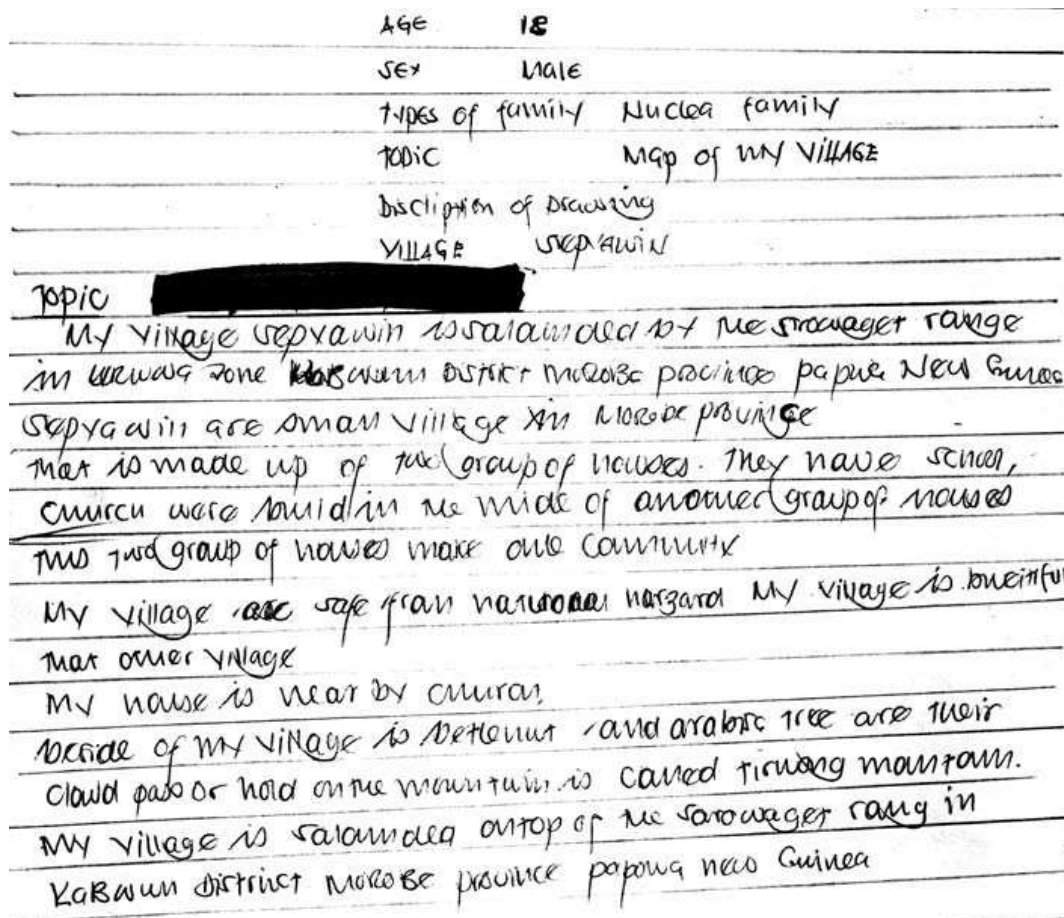 AGE 18
SEX Male
Types of family Nuclea family
TOPIC Map of MY VILLAGE
Discliption of Drawing
VILLAGE Sepyawin
Topic
My village Sepyawin is salaunded by the sarowaget range
in zone Kabwum District MOROBE province papua New Guinea
Sepyawin are small village in Morobe province
that is made up of two group of houses. They have school,
church were build in the midle of another group of houses
this two group of houses make one community
My village are safe from harzard My village is bueitiful
that other village
My house is near by church
beside of my village is bettlenut and arabic tree are their
cloud pass or hold on the mountain is called tirwong mountain.
My village is salaunded ontop of the sarowaget rang in
KaBwum District MOROBE province papowa new Guinea